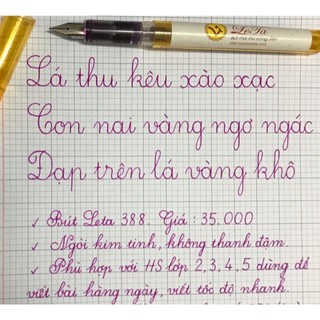 LeTa
Lá thu kêu xào xạc
Con nai vàng ngơ ngác
Đạp trên lá vàng khô
✓ Bút Leta 388. Giá : 35.000
✓ Ngòi kim tinh, không thanh đậm.
✓ Phù hợp với HS lớp 2,3,4,5 dùng để
viết bài hàng ngày, viết tốc độ nhanh.